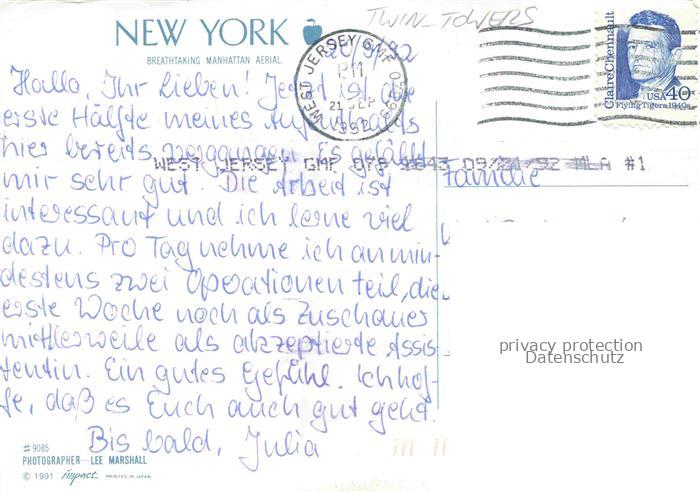 NEW YORK
BREATHTAKING MANHATTAN AERIAL
TWIN-TOWERS
20/9/92
WEST JERSEY GMF
PM
21 SEP
1992
Claire Chennault
USA 40
Flying Tigers 1940s
Hallo, Ihr Lieben! Jetzt ist die
erste Hälfte meines Aufenthalts
hier bereits vergangen. Es gefällt
WEST JERSEY GMF 09/21/92 MLA #1
mir sehr gut. Die Arbeit ist
Familie
interessant und ich lerne viel
dazu. Pro Tag nehme ich an min-
destens zwei Operationen teil, die
erste Woche noch als Zuschauer
mittlerweile als akzeptierte Assis
tentin. Ein gutes Gefühl. Ich hof-
fe, daß es Euch auch gut geht.
Bis bald, Julia
privacy protection
Datenschutz
#9085
PHOTOGRAPHER—LEE MARSHALL
© 1991 impact PRINTED IN JAPAN